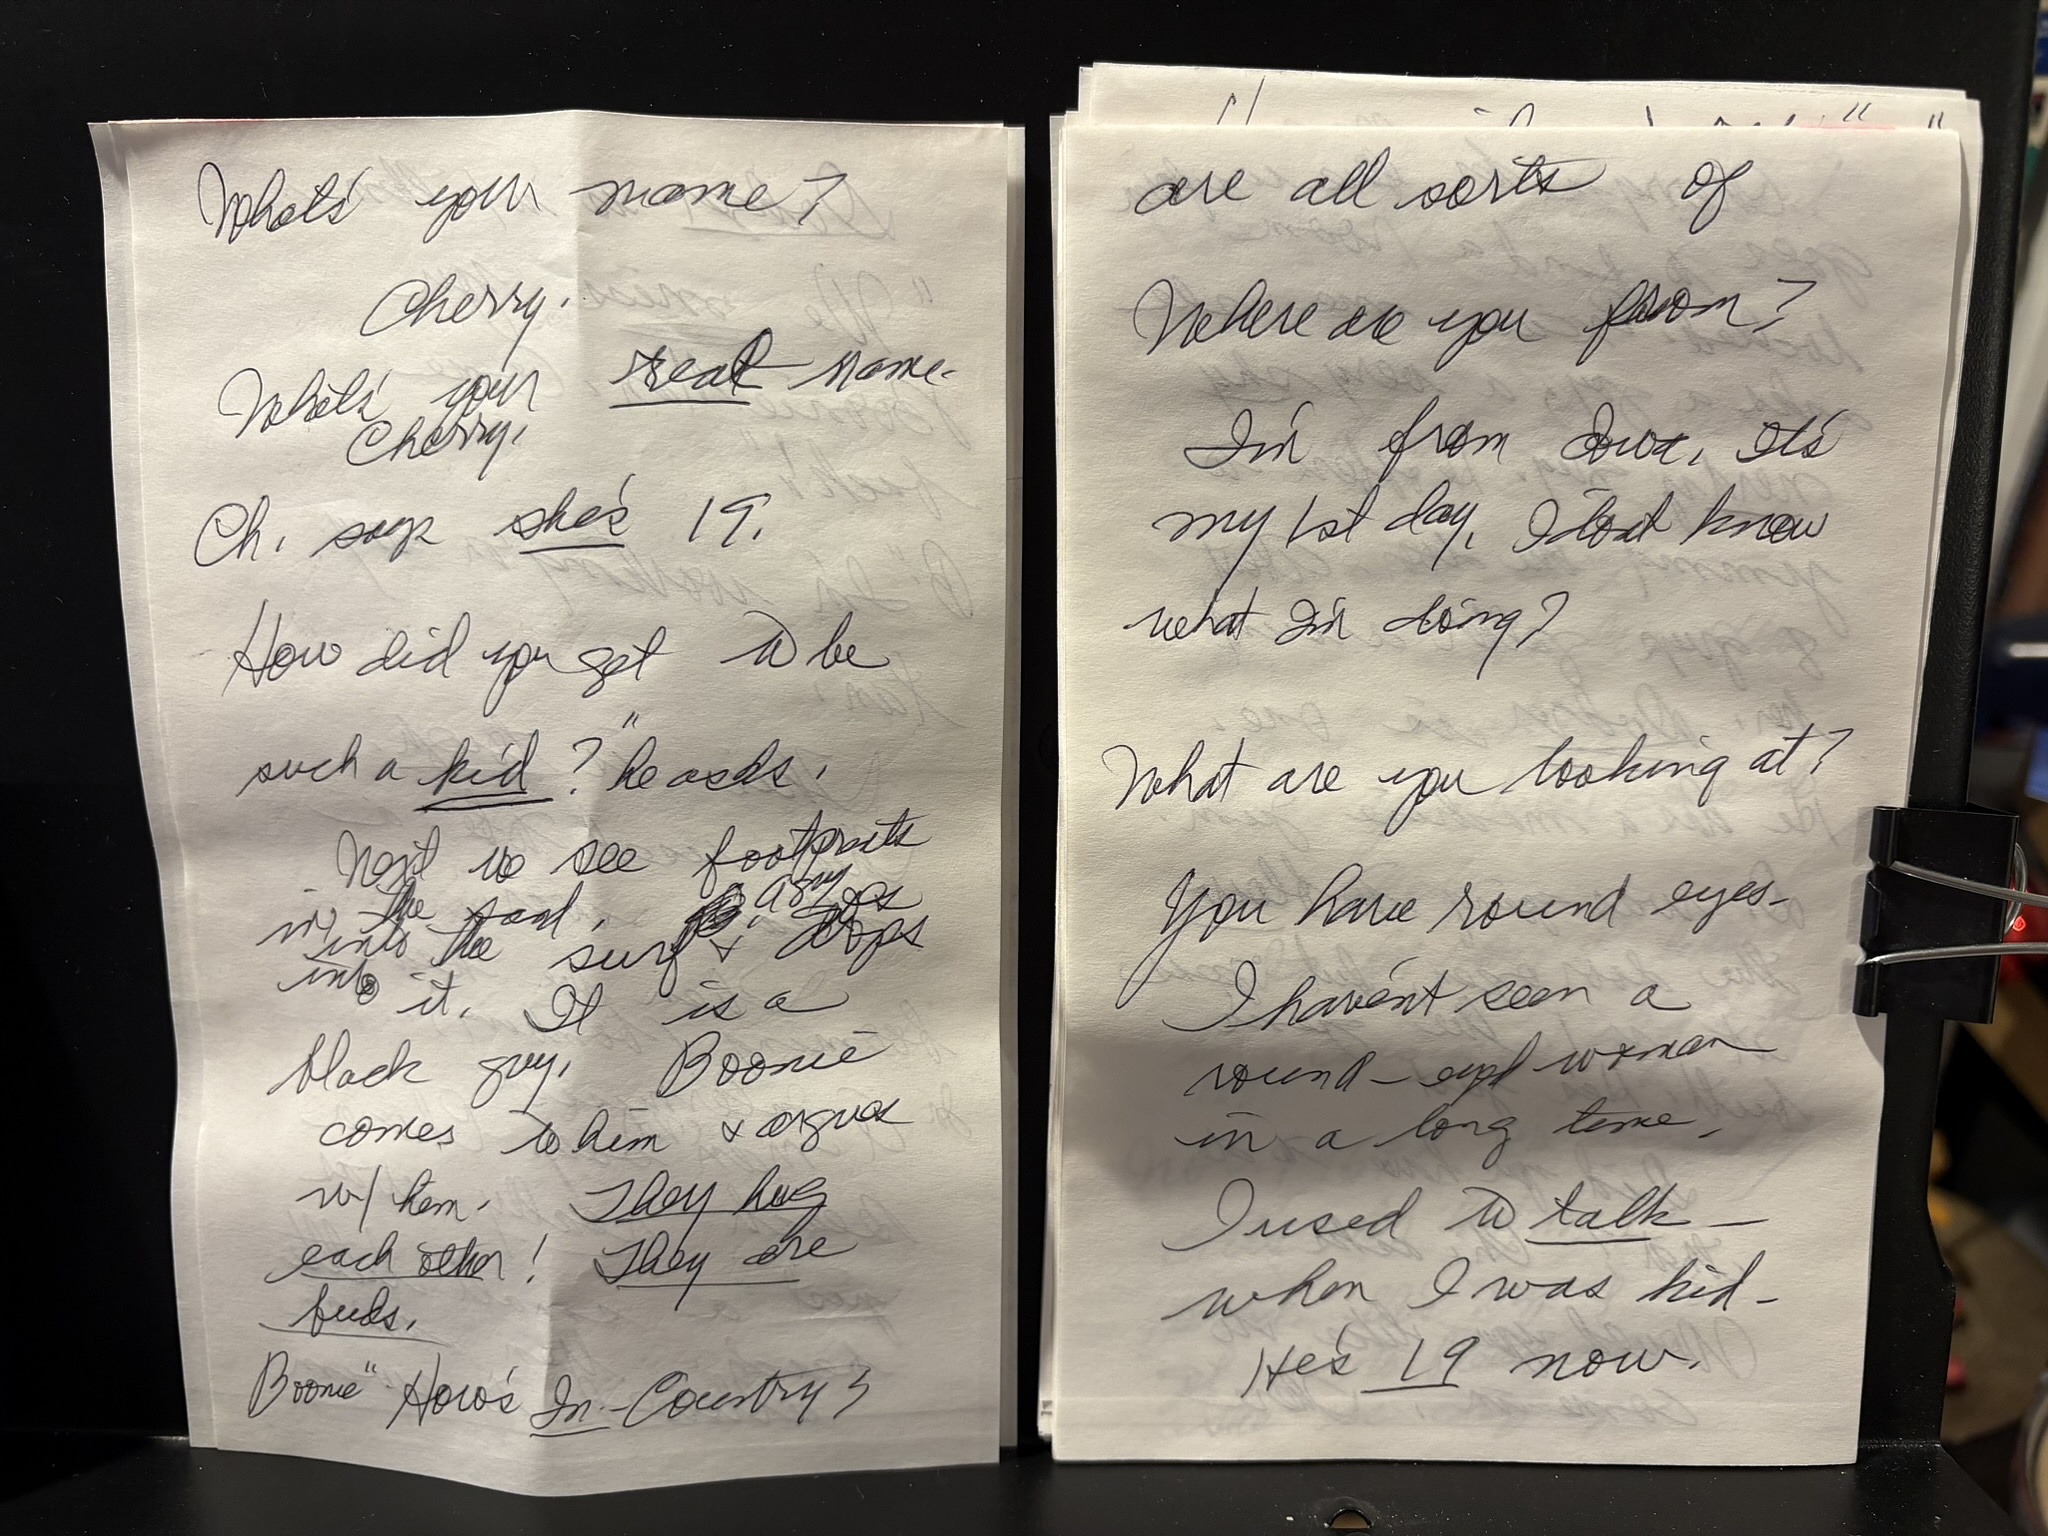 What's your name?
Cherry.
What's your real name.
Cherry.
Ch. says she's 19.
How did you get to be
such a kid?" he asks.
Next we see footprints
in the sand. A guy goes
into the surf & drops
into it. It is a
black guy. Boonie
comes to him & argues
w/ him. They hug
each other! They are
buds.
Boonie" How's In-Country?
are all sorts of
Where are you from?
I'm from Iowa, It's
my 1st day, I don't know
what I'm doing?
What are you looking at?
You have round eyes-
I haven't seen a
round-eyed woman
in a long time.
I used to talk -
when I was kid -
He's 19 now.